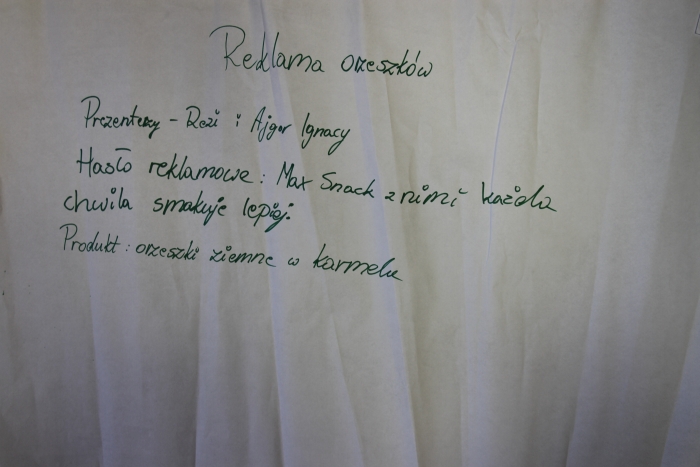 Reklama orzeszków
Prezenterzy - Rezi i Ajgor Ignacy
Hasło reklamowe: Max Snack z nimi każda
chwila smakuje lepiej.
Produkt: orzeszki ziemne w karmelu